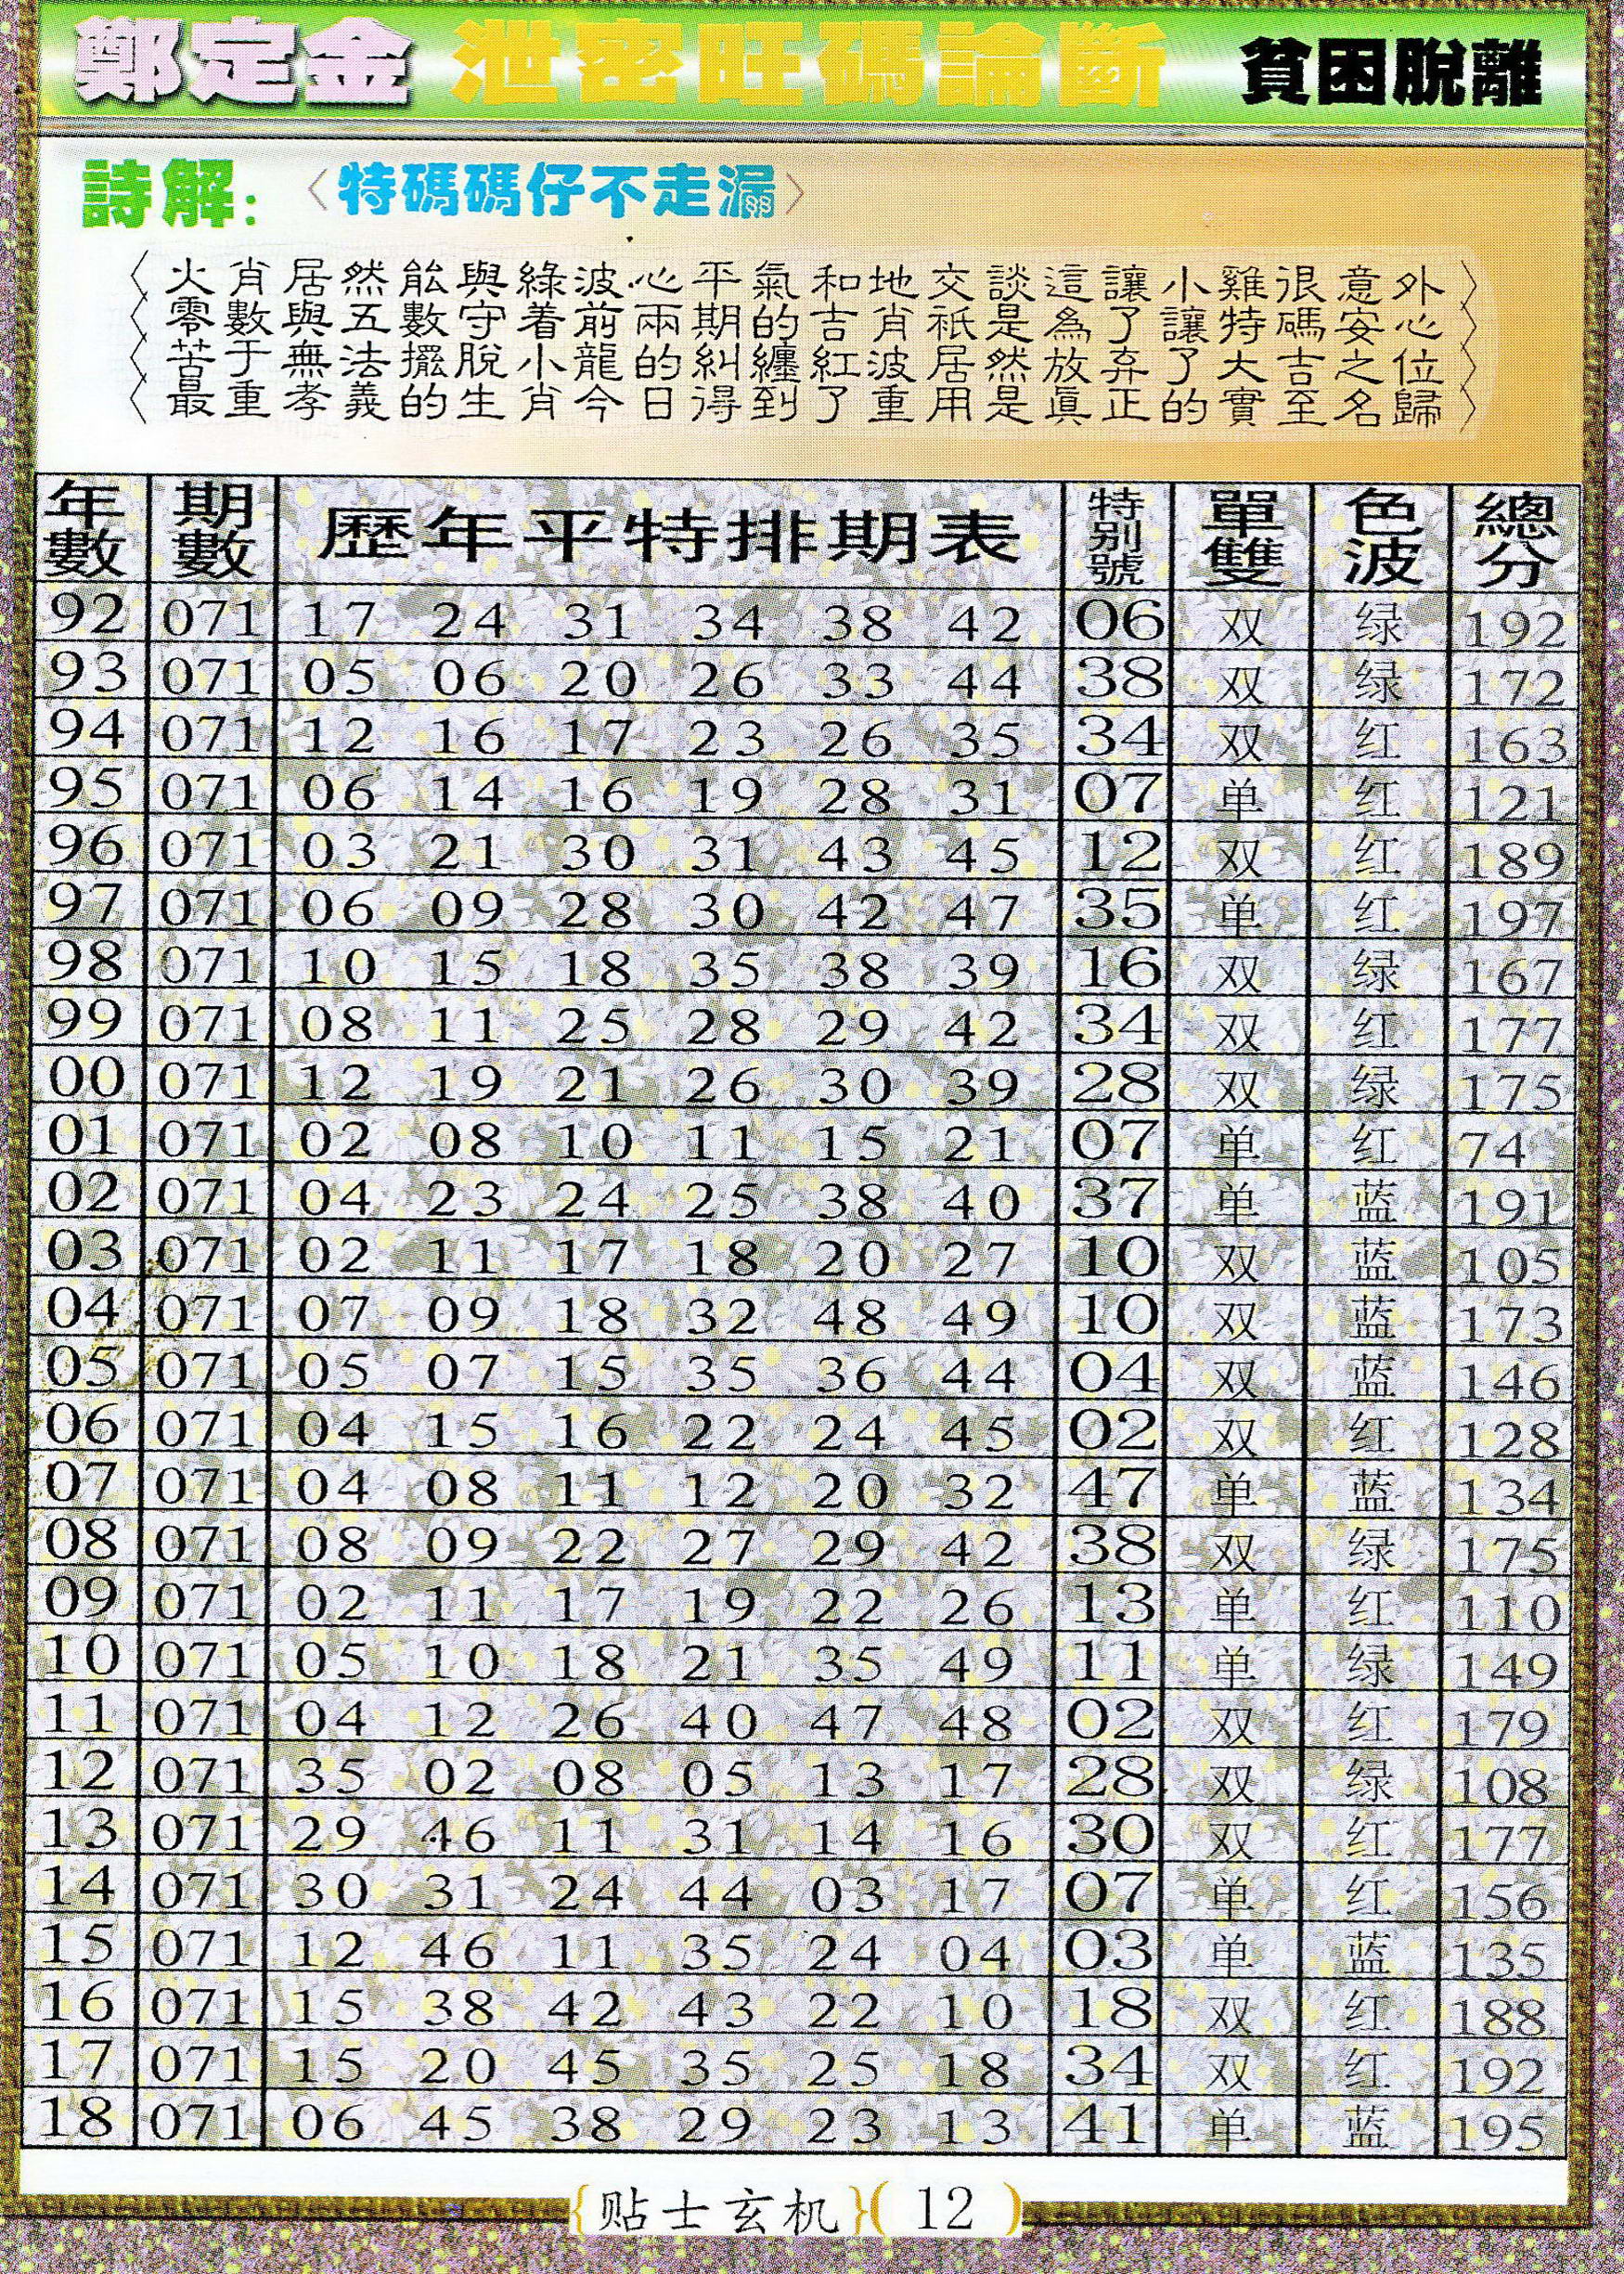 鄭定金 泄密旺碼論斷 貧困脫離
詩解：〈特碼碼仔不走漏〉
〈火肖居然能與綠波心平氣和地交談這讓小雞很意外〉
〈零數與五數守着前兩期的吉肖祇是為了讓特碼安心〉
〈苦于無法擺脫小龍的糾纏紅波居然放弃了大吉之位〉
〈最重孝義的生肖今日得到了重用是真正的實至名歸〉
年數 期數 歷年平特排期表 特别號 單雙 色波 總分
92 071 17 24 31 34 38 42 06 双 绿 192
93 071 05 06 20 26 33 44 38 双 绿 172
94 071 12 16 17 23 26 35 34 双 红 163
95 071 06 14 16 19 28 31 07 单 红 121
96 071 03 21 30 31 43 45 12 双 红 189
97 071 06 09 28 30 42 47 35 单 红 197
98 071 10 15 18 35 38 39 16 双 绿 167
99 071 08 11 25 28 29 42 34 双 红 177
00 071 12 19 21 26 30 39 28 双 绿 175
01 071 02 08 10 11 15 21 07 单 红 74
02 071 04 23 24 25 38 40 37 单 蓝 191
03 071 02 11 17 18 20 27 10 双 蓝 105
04 071 07 09 18 32 48 49 10 双 蓝 173
05 071 05 07 15 35 36 44 04 双 蓝 146
06 071 04 15 16 22 24 45 02 双 红 128
07 071 04 08 11 12 20 32 47 单 蓝 134
08 071 08 09 22 27 29 42 38 双 绿 175
09 071 02 11 17 19 22 26 13 单 红 110
10 071 05 10 18 21 35 49 11 单 绿 149
11 071 04 12 26 40 47 48 02 双 红 179
12 071 35 02 08 05 13 17 28 双 绿 108
13 071 29 46 11 31 14 16 30 双 红 177
14 071 30 31 24 44 03 17 07 单 红 156
15 071 12 46 11 35 24 04 03 单 蓝 135
16 071 15 38 42 43 22 10 18 双 红 188
17 071 15 20 45 35 25 18 34 双 红 192
18 071 06 45 38 29 23 13 41 单 蓝 195
{贴士玄机}(12)